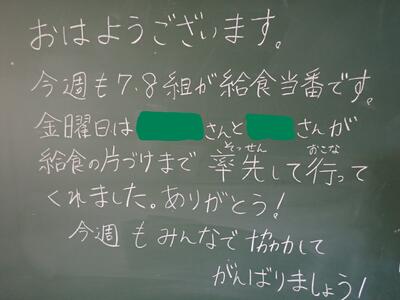 おはようございます。
今週も7、8組が給食当番です。
金曜日は さんと さんが
給食の片づけまで率先して行って
そっせん おこな
くれました。ありがとう!
今週もみんなで協力して
がんばりましょう!